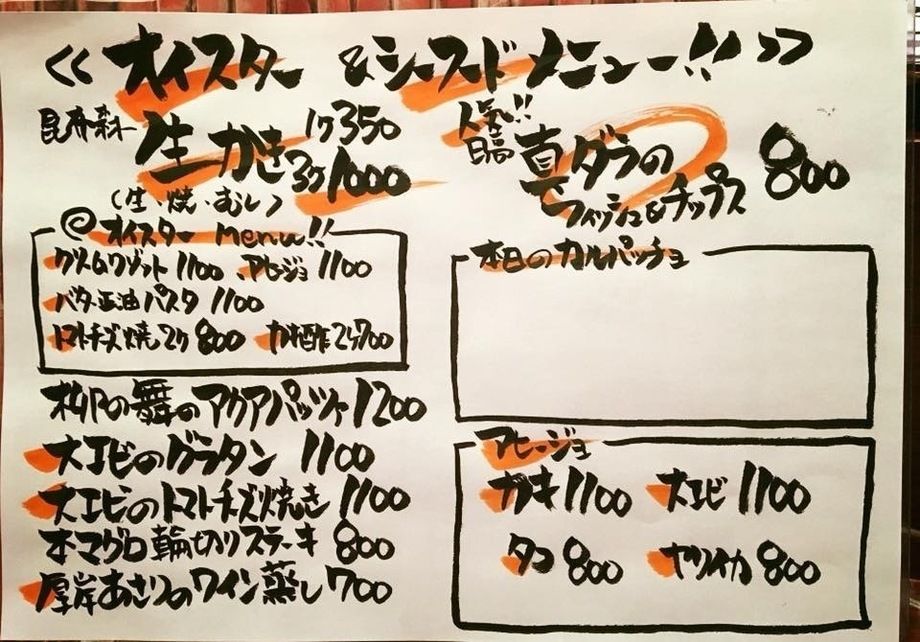 << オイスター & シーフードメニュー!! >>
昆布森
生かき
1ケ350
3ケ1000
(生・焼・むし)
オイスター menu!!
クリームリゾット 1100 アヒージョ 1100
バター正油パスタ 1100
トマトチーズ焼 2ケ 800 カキ酢 2ケ700
柳の舞のアクアパッツァ 1200
大エビのグラタン 1100
大エビのトマトチーズ焼き 1100
本マグロ輪切りステーキ 800
厚岸あさりのワイン蒸し 700
人気!!
日高
真ダラの
フィッシュ&チップス
800
本日のカルパッチョ
アヒージョ
カキ 1100 大エビ 1100
タコ 800 ヤリイカ 800